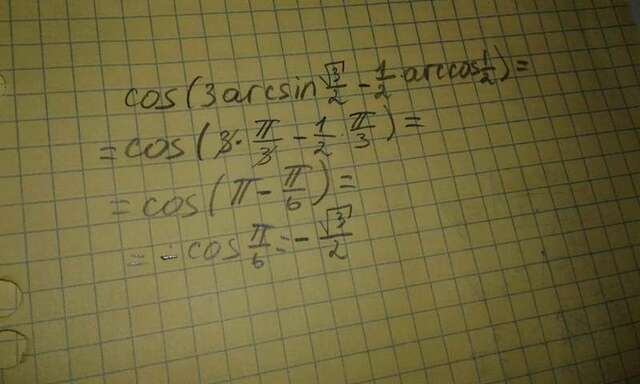 cos(3arcsin √3/2 - 1/2 arccos 1/2) =
= cos(3 · π/3 - 1/2 · π/3) =
= cos(π - π/6) =
= - cos π/6 = - √3/2